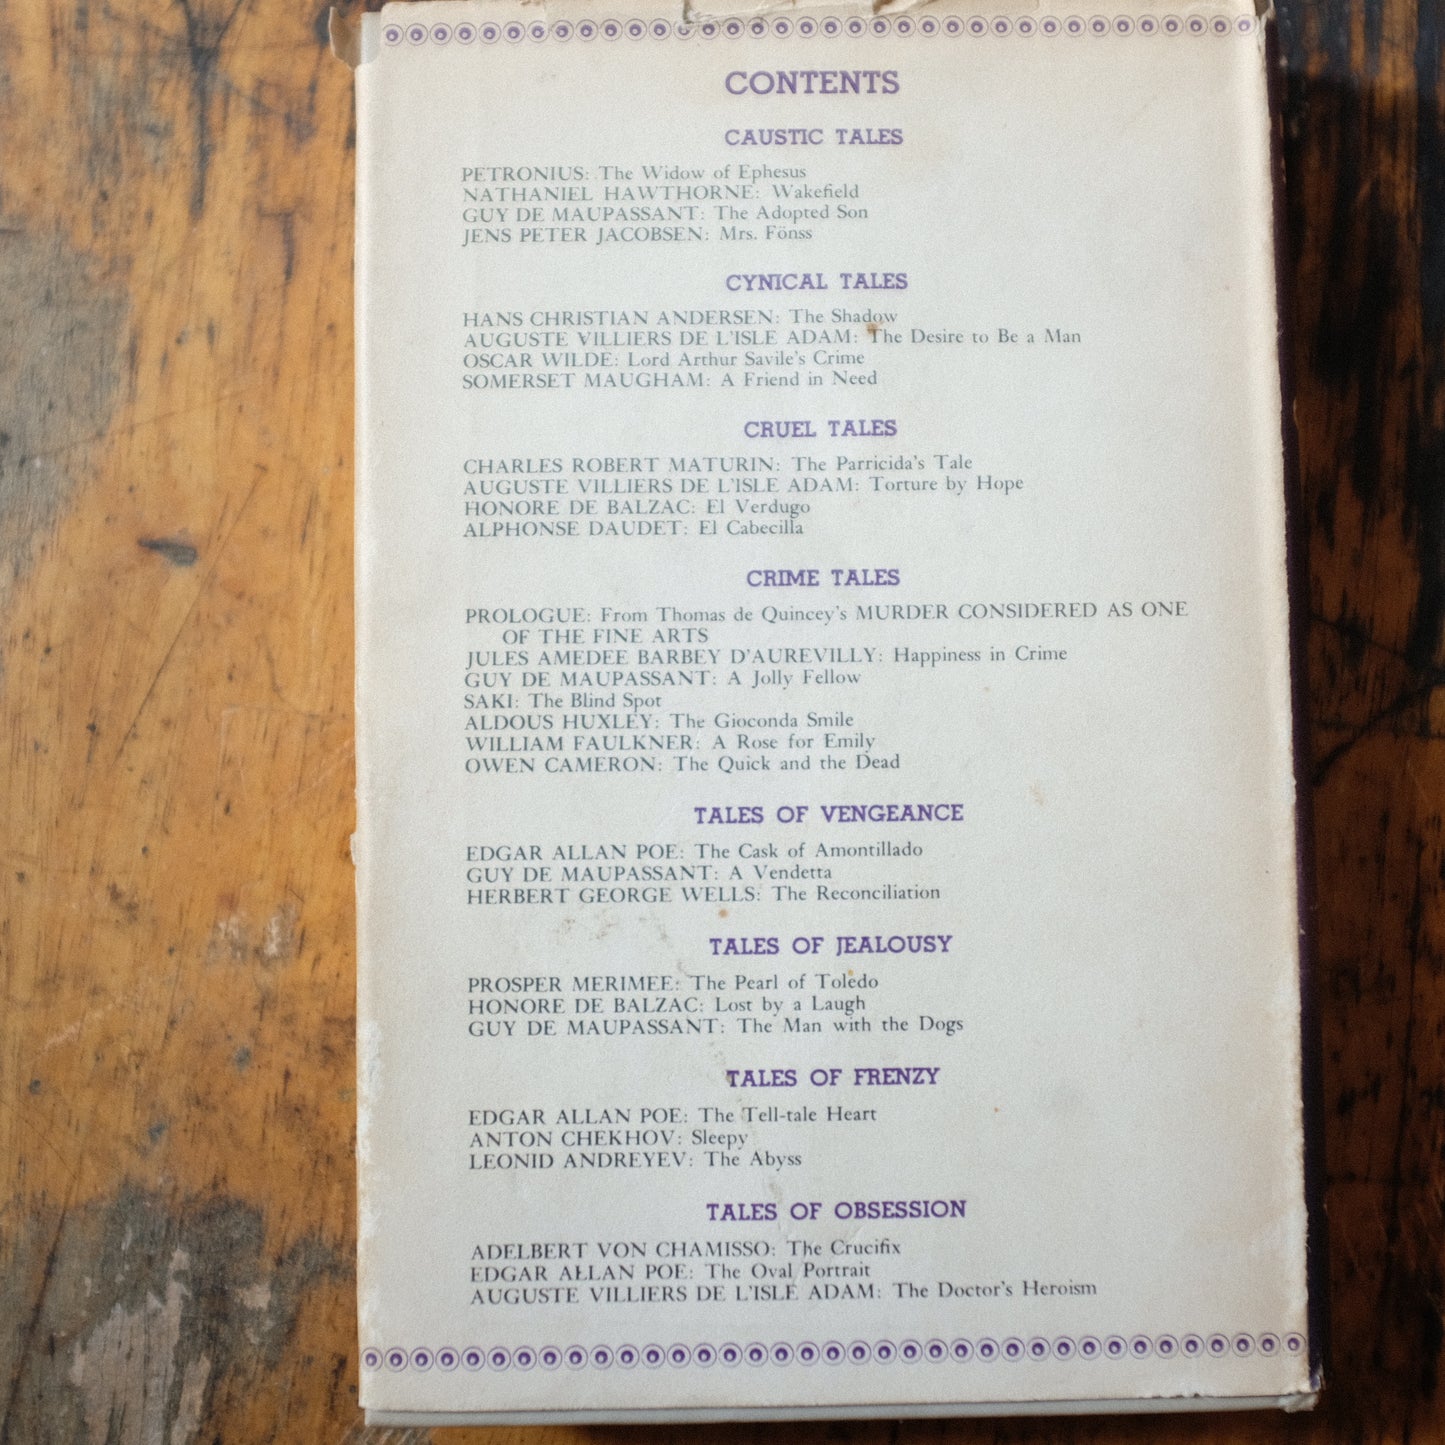 CONTENTS
CAUSTIC TALES
PETRONIUS: The Widow of Ephesus
NATHANIEL HAWTHORNE: Wakefield
GUY DE MAUPASSANT: The Adopted Son
JENS PETER JACOBSEN: Mrs. Fönss
CYNICAL TALES
HANS CHRISTIAN ANDERSEN: The Shadow
AUGUSTE VILLIERS DE L'ISLE ADAM: The Desire to Be a Man
OSCAR WILDE: Lord Arthur Savile's Crime
SOMERSET MAUGHAM: A Friend in Need
CRUEL TALES
CHARLES ROBERT MATURIN: The Parricida's Tale
AUGUSTE VILLIERS DE L'ISLE ADAM: Torture by Hope
HONORE DE BALZAC: El Verdugo
ALPHONSE DAUDET: El Cabecilla
CRIME TALES
PROLOGUE: From Thomas de Quincey's MURDER CONSIDERED AS ONE
OF THE FINE ARTS
JULES AMEDEE BARBEY D'AUREVILLY: Happiness in Crime
GUY DE MAUPASSANT: A Jolly Fellow
SAKI: The Blind Spot
ALDOUS HUXLEY: The Gioconda Smile
WILLIAM FAULKNER: A Rose for Emily
OWEN CAMERON: The Quick and the Dead
TALES OF VENGEANCE
EDGAR ALLAN POE: The Cask of Amontillado
GUY DE MAUPASSANT: A Vendetta
HERBERT GEORGE WELLS: The Reconciliation
TALES OF JEALOUSY
PROSPER MERIMEE: The Pearl of Toledo
HONORE DE BALZAC: Lost by a Laugh
GUY DE MAUPASSANT: The Man with the Dogs
TALES OF FRENZY
EDGAR ALLAN POE: The Tell-tale Heart
ANTON CHEKHOV: Sleepy
LEONID ANDREYEV: The Abyss
TALES OF OBSESSION
ADELBERT VON CHAMISSO: The Crucifix
EDGAR ALLAN POE: The Oval Portrait
AUGUSTE VILLIERS DE L'ISLE ADAM: The Doctor's Heroism